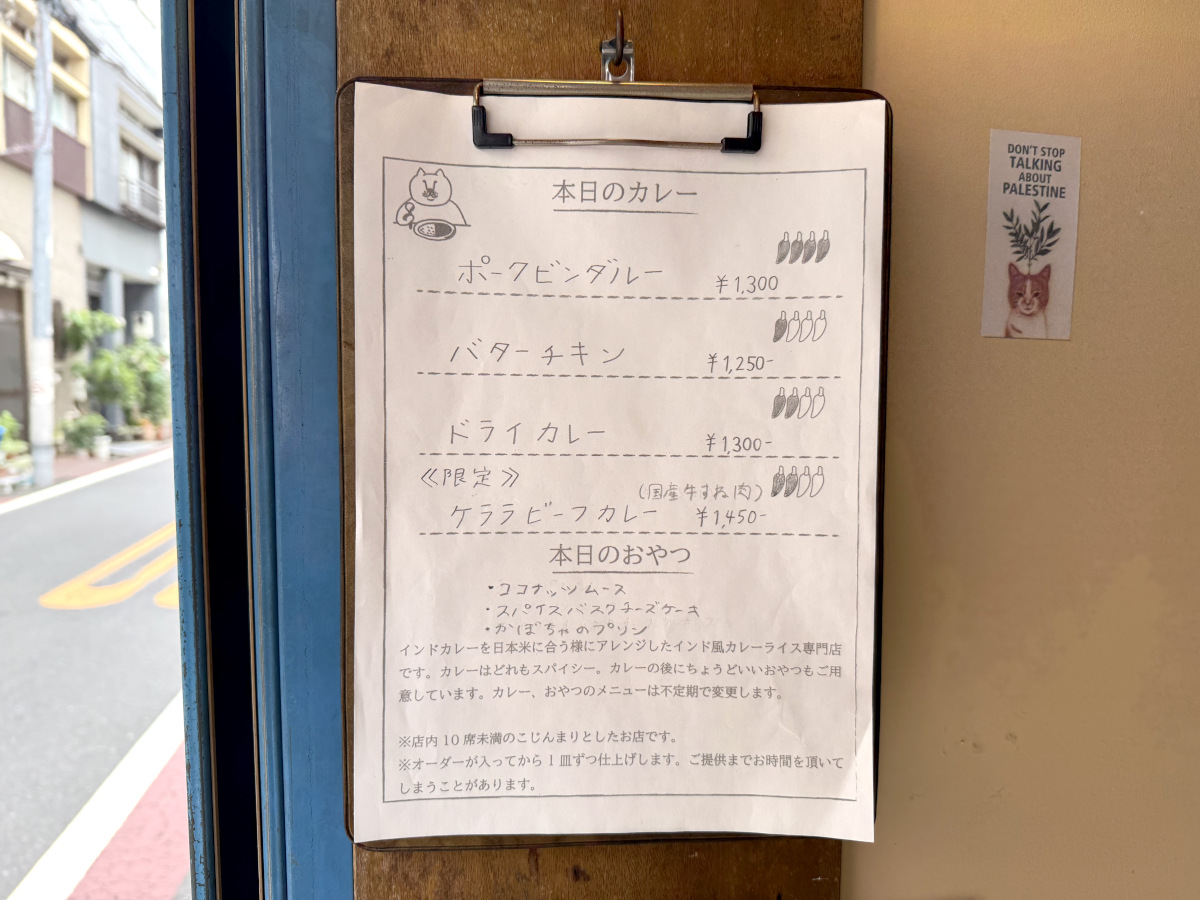 本日のカレー
ポークビンダルー ¥1,300
バターチキン ¥1,250-
ドライカレー ¥1,300-
≪限定≫
(国産牛すね肉)
ケララビーフカレー ¥1,450-
本日のおやつ
・ココナッツムース
・スパイスバスクチーズケーキ
・かぼちゃのプリン
インドカレーを日本米に合う様にアレンジしたインド風カレーライス専門店
です。カレーはどれもスパイシー。カレーの後にちょうどいいおやつもご用
意しています。カレー、おやつのメニューは不定期で変更します。
※店内 10 席未満のこじんまりとしたお店です。
※オーダーが入ってから 1 皿ずつ仕上げします。ご提供までお時間を頂いて
しまうことがあります。
DON'T STOP
TALKING
ABOUT
PALESTINE